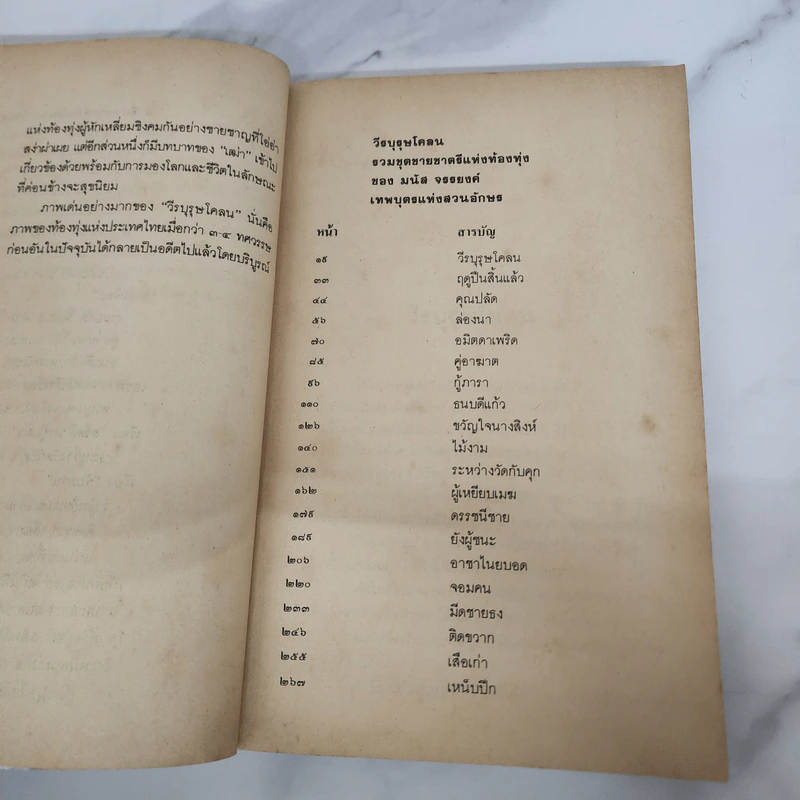 แห่งท้องทุ่งผู้หักเหลี่ยมชิงคมกันอย่างชายชาญที่ไอ่อ่า
สง่าผ่าเผย แต่อีกส่วนหนึ่งก็มีบทบาทของ "เฒ่า" เข้าไป
เกี่ยวข้องด้วยพร้อมกับการมองโลกและชีวิตในลักษณะ
ที่ค่อนข้างจะสุขนิยม
ภาพเด่นอย่างมากของ "วีรบุรุษโคลน" นั่นคือ
ภาพของท้องทุ่งแห่งประเทศไทยเมื่อกว่า ๓-๔ ทศวรรษ
ก่อนอันในปัจจุบันได้กลายเป็นอดีตไปแล้วโดยบริบูรณ์
วีรบุรุษโคลน
รวมชุดชายชาตรีแห่งท้องทุ่ง
ของ มนัส จรรยงค์
เทพบุตรแห่งสวนอักษร
หน้า สารบัญ
๑๙ วีรบุรุษโคลน
๓๓ ฤดูปืนสิ้นแล้ว
๔๔ คุณปลัด
๕๖ ล่องนา
๗๐ อมิตดาเพริด
๘๕ คู่อาฆาต
๙๖ กู้ภารา
๑๑๐ ธนบดีแก้ว
๑๒๖ ขวัญใจนางสิงห์
๑๔๐ ไม้งาม
๑๕๑ ระหว่างวัดกับคุก
๑๖๒ ผู้เหยียบเมฆ
๑๗๙ ดรรชนีชาย
๑๘๙ ยังผู้ชนะ
๒๐๖ อาชาไนยบอด
๒๒๐ จอมคน
๒๓๓ มีดชายธง
๒๔๖ ติดขวาก
๒๕๕ เสือเก่า
๒๖๗ เหน็บปีก